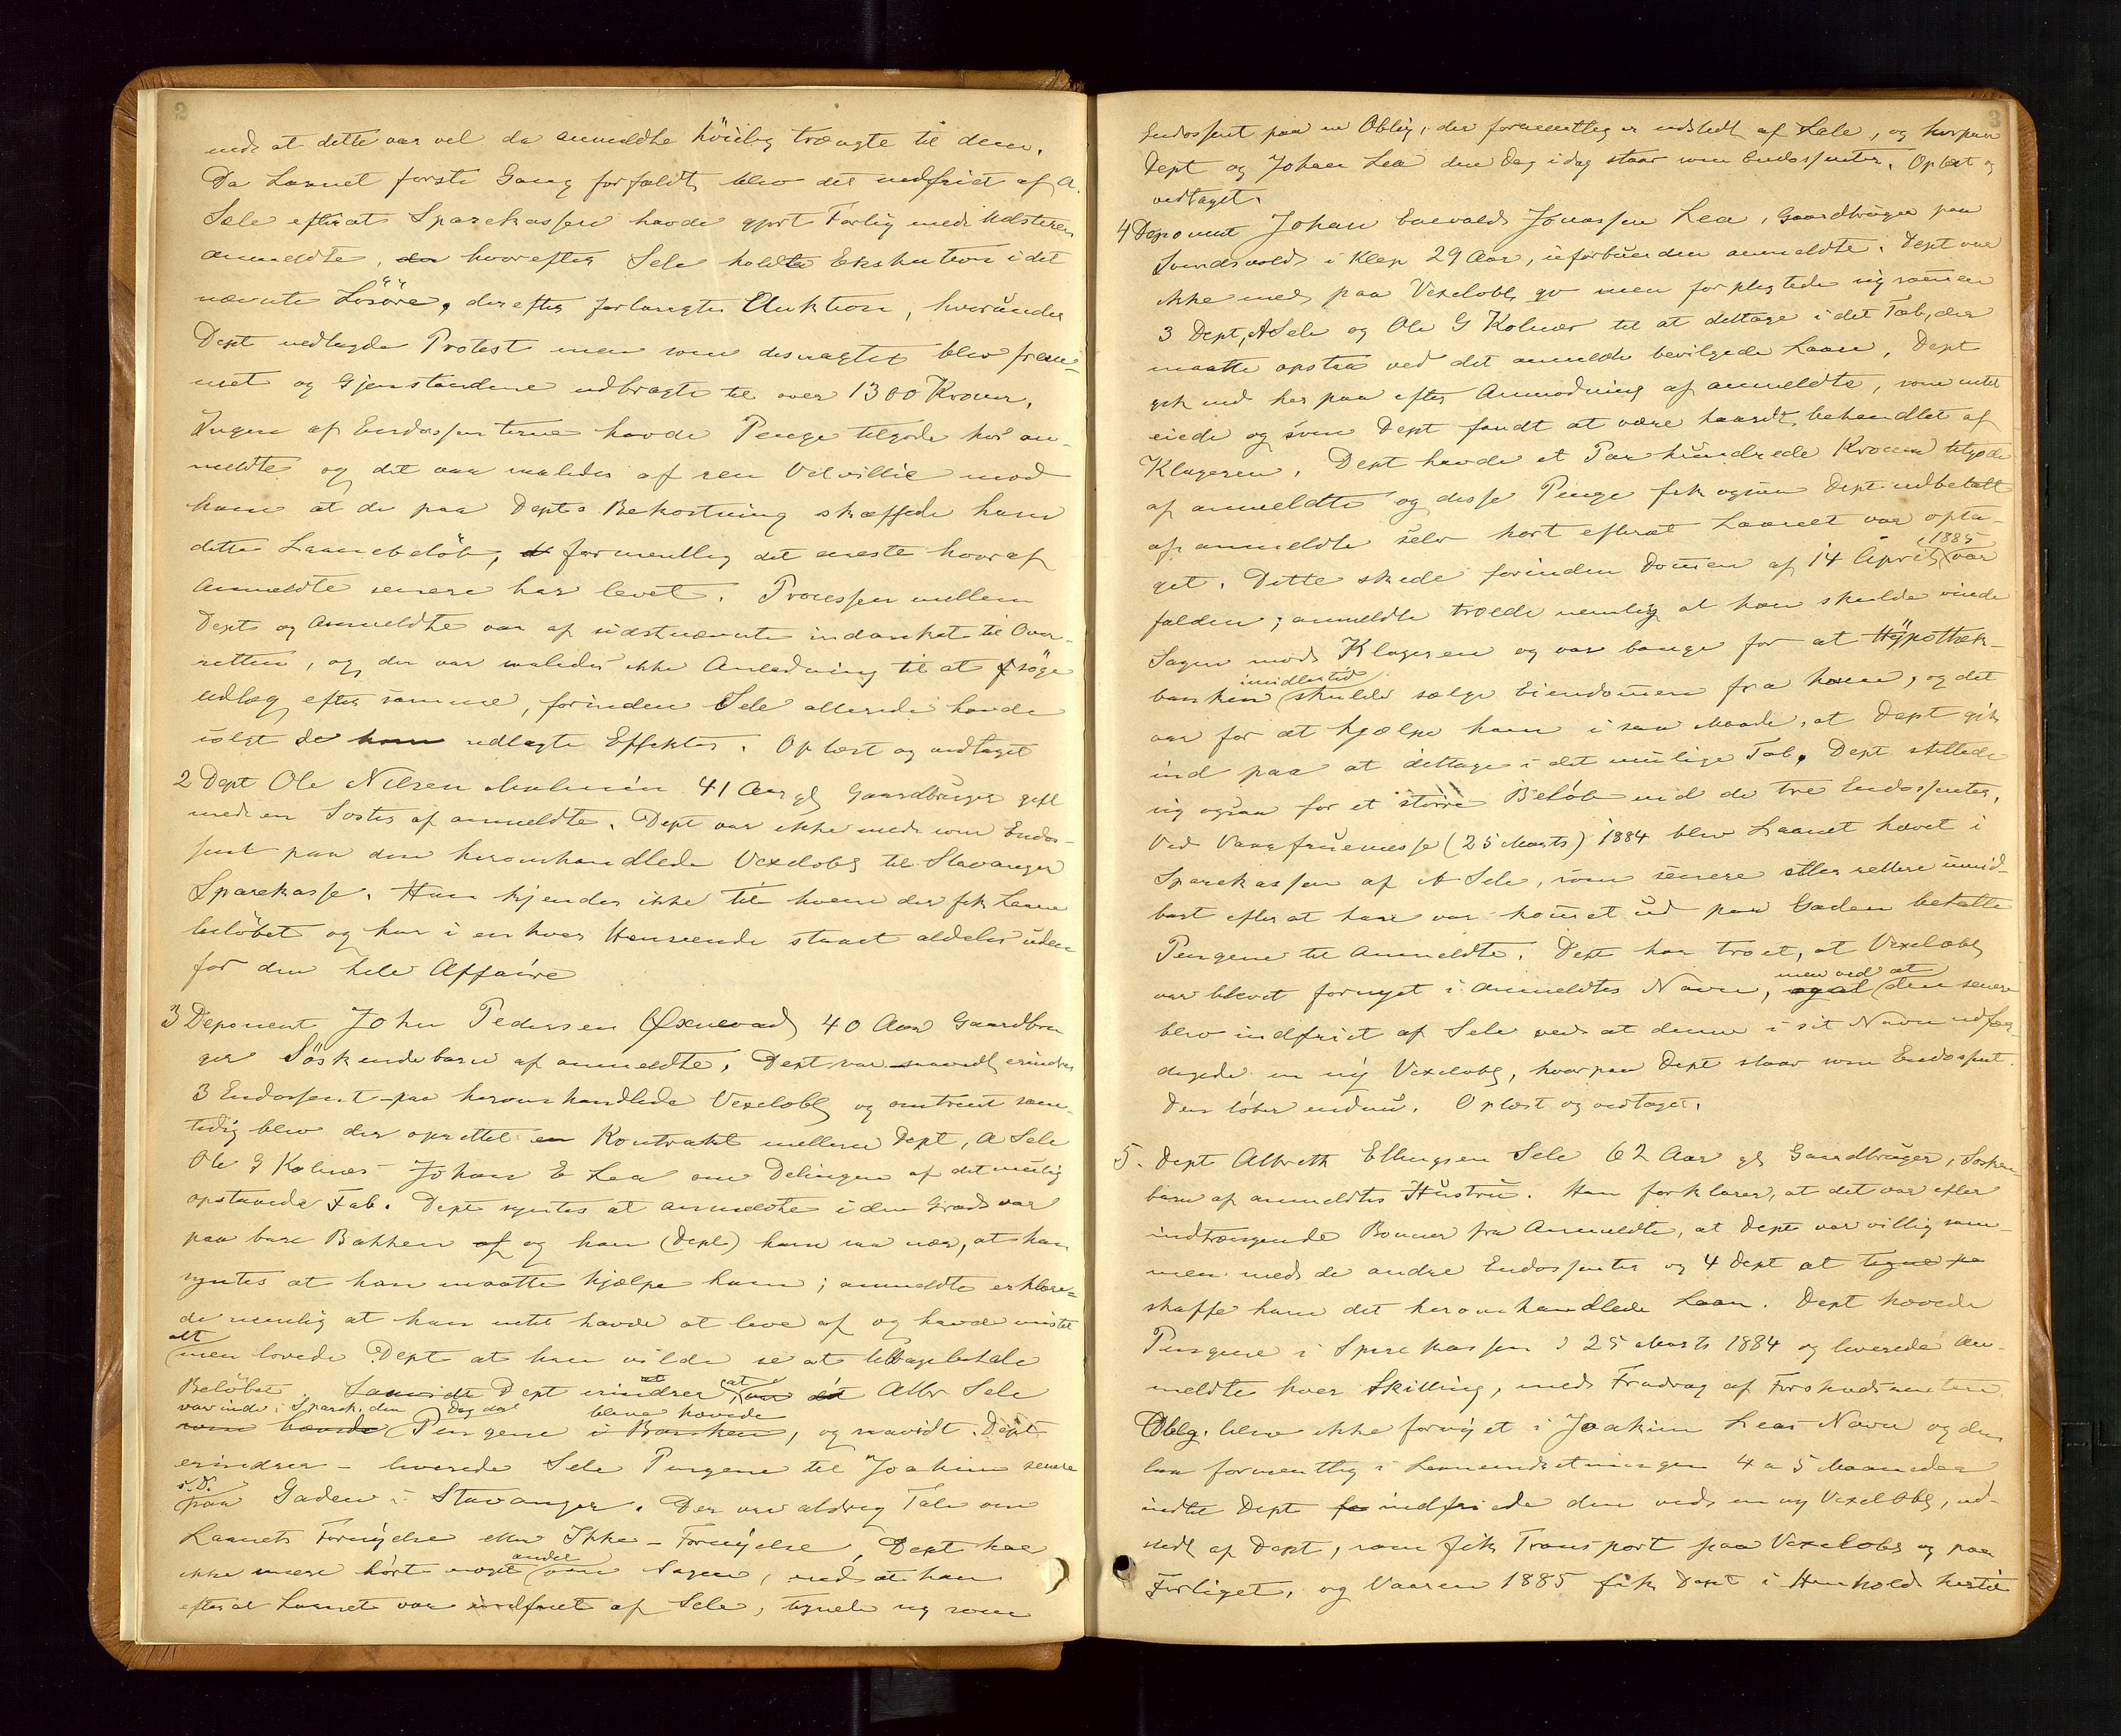 2
med at dette var vel da anmeldte høilig trængte til dem.
Da Laanet første Gang forfaldt, blev det indfriet af A.
Sele efterat Sparekassen havde gjort Forlig med Udstederen
anmeldte, hvorefter Sele holdte Exekution i det
nævnte Løsøre, derefter forlangte Auktion, hvorunder
Dept nedlagde Protest men som desuagtet blev frem-
met og Gjenstandene udbragte til over 1300 Kroner.
Ingen af Endossenterne havde Penge tilgode hos an-
meldte og det var saaledes af ren Velvillie mod
ham at de paa Depts Bekostning skaffede ham
dette Laanebeløb, formentlig det eneste hvoraf
Anmeldte senere har levet. Processen mellem
Dept og Anmeldte var af sidstnævnte indanket til Over-
retten, og der var saaledes ikke Anledning til at søge
Udlæg efter samme, forinden Sele allerede havde
solgt de udlagte Effekter. Oplæst og vedtaget
2 Dept Ole Nilsen Malmin 41 Aar gl Gaardbruger gift
med en Søster af anmeldte. Dept var ikke med som Endos-
sent paa den heromhandlede Vexelobl til Stavanger
Sparekasse. Han kjender ikke til hvem der fik Laane
beløbet og har i enhver Henseende staaet aldeles uden
for den hele Affaire
3 Deponent John Pedersen Øxnevad 40 Aar Gaardbru
ger Söskendebarn af anmeldte. Dept var saavidt erindres
3 Endossent paa heromhandlede Vexelobl og omtrent sam-
tidig blev der oprettet en Kontrakt mellem Dept, A Sele
Ole G Kolnes Johan E Lea om Delingen af det mulig
opstaaede Tab. Dept syntes at anmeldte i den Grad var
paa bare Bakken og han (Dept) ham saa nær, at han
syntes at han maatte hjælpe ham; anmeldte erklære-
de nemlig at han intet havde at leve af og havde mistet
alt
men lovede Dept at han vilde se at tilbagebetale
Beløbet. Dept erindrer at Albr Sele
var inde i Sparek. den Dag da bleve hævede
Pengene, og saavidt Dept
erindrer – leverede Sele Pengene til Joakim senere
s.D.
paa Gaden i Stavanger. Der var aldrig Tale om
Laanets Fornyelse eller Ikke-Fornyelse, Dept har
andet
ikke senere hørt noget om Sagen, end at han
efterat Laanet var indfriet af Sele, tegnede sig som
3
Endossent paa en Oblig, der formentlig er udstedt af Sele, og hvorpaa
Dept og Johan Lea den Dag idag staar som Endossenter. Oplæst og
vedtaget.
4 Deponent Johan Enevald Jonassen Lea, Gaardbruger paa
Svendsvold i Klep 29 Aar, uforbunden anmeldte. Dept var
ikke med paa Vexelobl qv men forpligtede sig sammen
3 Dept, A Sele og Ole G Kolnes til at deltage i det Tab, der
maatte opstaa ved det anmeldte bevilgede Laan, Dept
gik ind her paa efter Anmodning af anmeldte, som intet
eiede og som Dept fandt at være haardt behandlet af
Klageren. Dept havde et Par hundrede Kroner tilgode
af anmeldte og disse Penge fik ogsaa Dept udbetalt
af anmeldte selv kort efterat Laanet var opta-
get. Dette skede forinden Dommen af 14 April 1885 var
falden; anmeldte troede nemlig at han skulde vinde
Sagen mod Klageren og var bange for at Hypothek-
imidlertid
banken skulde sælge Eiendommen fra ham, og det
var for at hjælpe ham i saa Maade, at Dept gik
ind paa at deltage i det mulige Tab. Dept stillede
sig ogsaa for et større Beløb end de tre Endossenter.
Ved Vaarfruemesse (25 Marts) 1884 blev Laanet hævet i
Sparekassen af A Sele, som senere eller rettere umid-
bart efter at han var kommet ud paa Gaden betalte
Pengene til Anmeldte. Dept har troet, at Vexelobl
men ved at
var blevet fornyet i anmeldtes Navn, den senere
blev indfriet af Sele ved at denne i sit Navn udfær-
digede en ny Vexelobl, hvorpaa Dept staar som Endossent.
Den løber endnu. Oplæst og vedtaget.
5. Dept Albreth Ellingsen Sele 62 Aar gl Gaardbruger, Søsken-
barn af anmeldtes Hustru. Han forklarer, at det var efter
indtrængende Bønner fra Anmeldte, at Dept var villig sam-
men med de andre Endossenter og 4 Dept at
skaffe ham det heromhandlede Laan. Dept hævede
Pengene i Sparekassen d 25 Marts 1884 og leverede An-
meldte hver Skilling, med Fradrag af Forskudsrenten.
Oblg. blev ikke fornyet i Joakim Leas Navn og den
laa formentlig i Laaneindretningen 4 a 5 Maaneder
indtil Dept indfriede den med en ny Vexelobl, ud-
stedt af Dept, som fik Transport paa Vexelobl og paa
Forliget, og Vaaren 1885 fik Dept i Henhold hertil